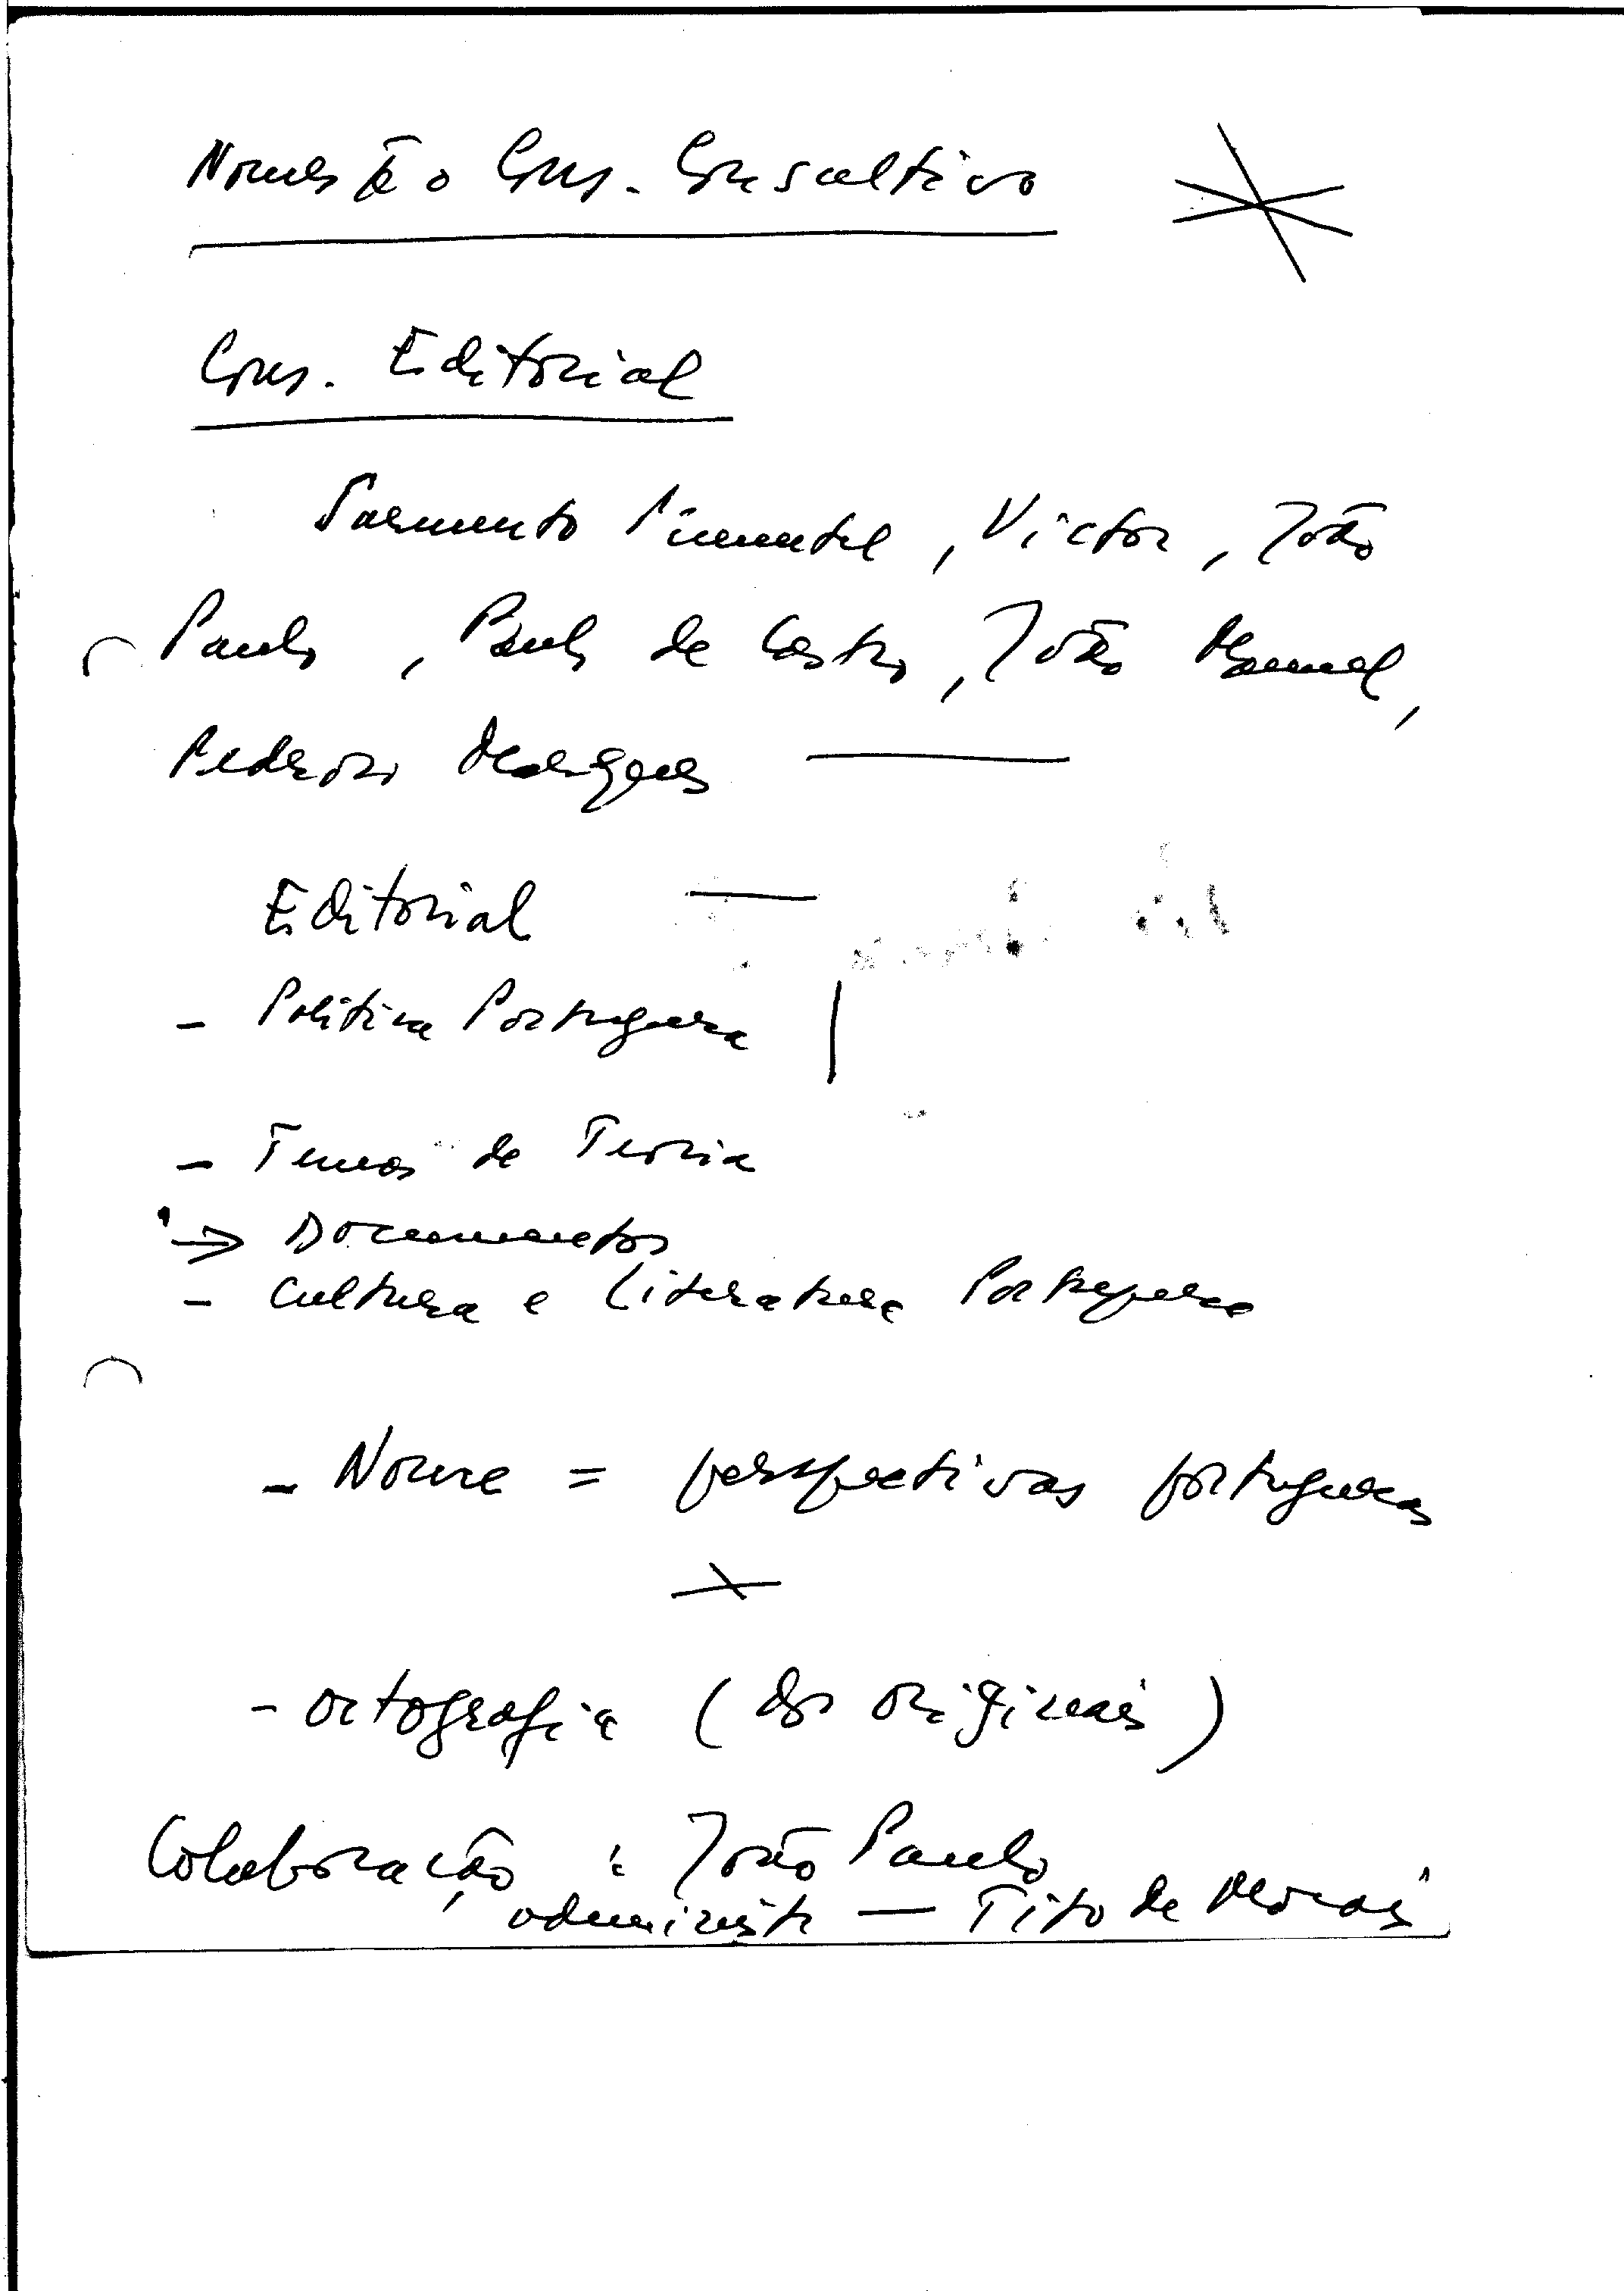 Nomes p̃ o Cons. Consultivo
Cons. Editorial
Sarmento Pimentel, Victor, João
Paulo, Paulo de Castro, João Manuel,
Pedroso Marques ——
Editorial —
- Politica Portuguesa |
- Temas de Teoria
→ Documentos
- Cultura e Literatura Portuguesa
- Nome = perspectivas portuguesas
- ortografia (dos originais)
Colaboração : João Paulo
administr — Tito de Morais